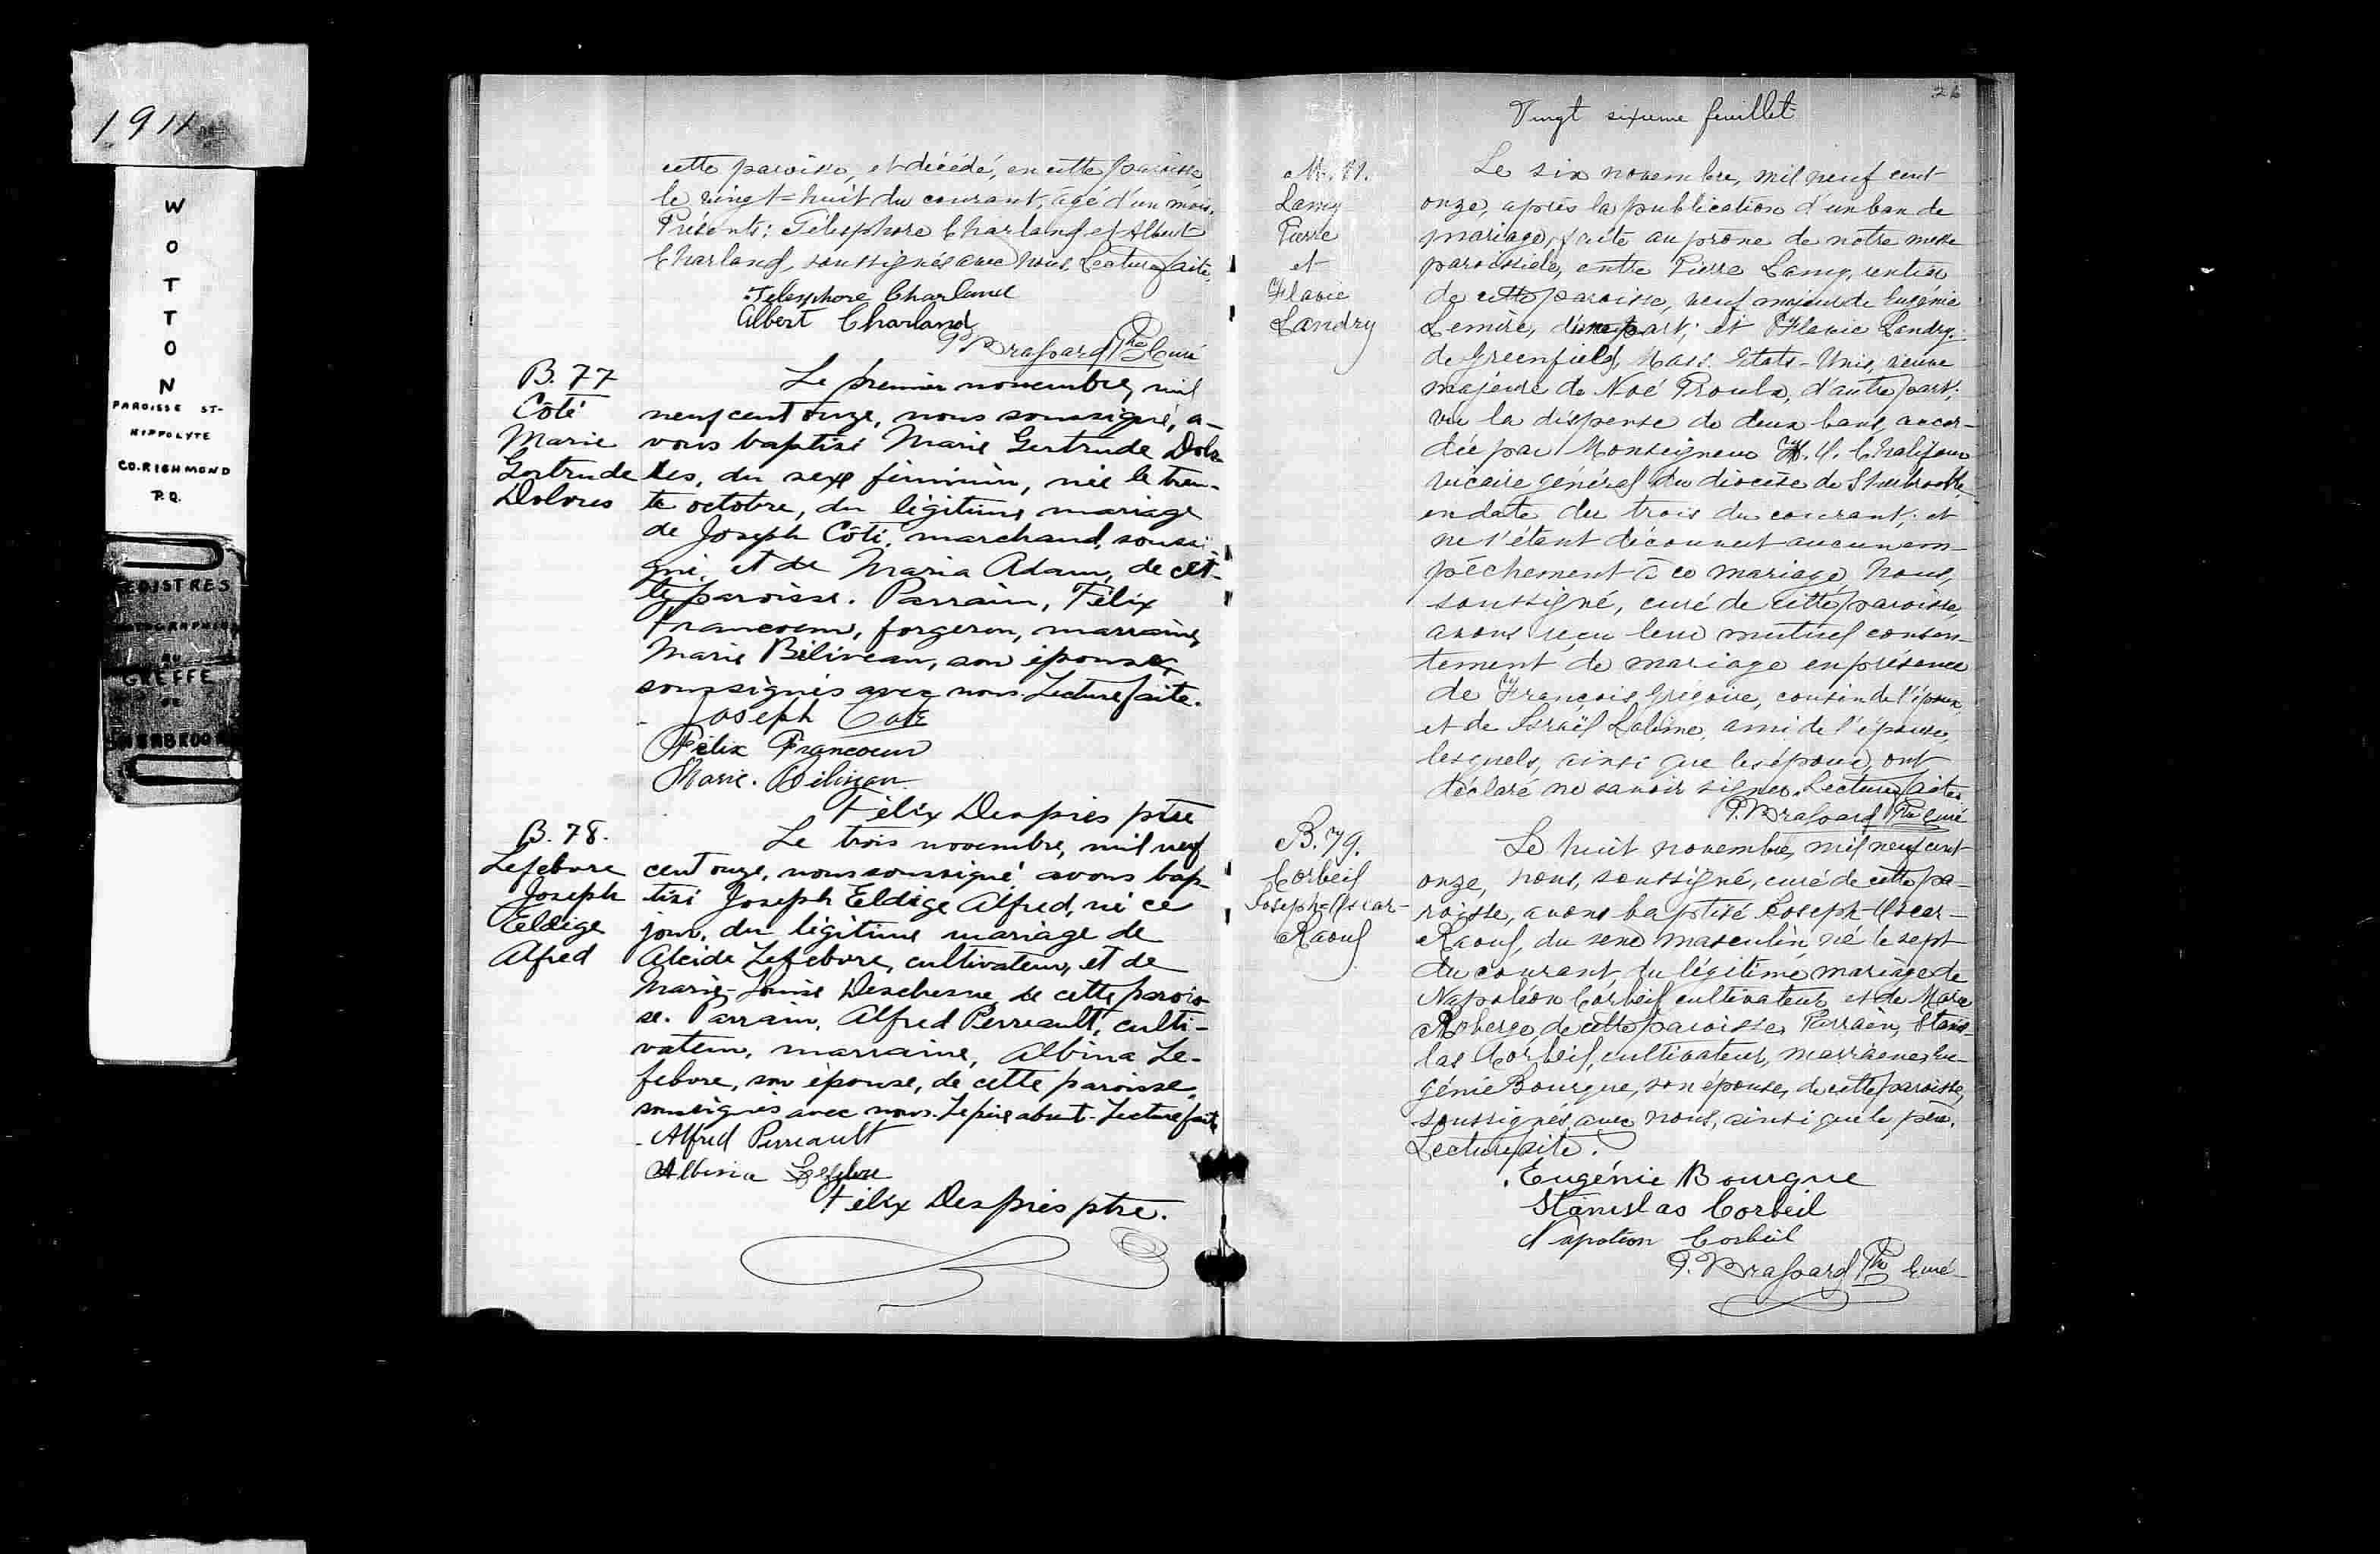 1911
W
O
T
T
O
N
PAROISSE ST-
HIPPOLYTE
CO. RICHMOND
P.Q.
REGISTRES
AU
GREFFE
DE
SHERBROOKE
cette paroisse, et décédé, en cette paroisse,
le vingt-huit du courant, âgé d'un mois.
Présents: Télesphore Charland et Albert
Charland, soussignés avec nous. Lecture faite.
Telesphore Charland
Albert Charland
P. Brassard Ptre Curé
B. 77
Côté
Marie
Gertrude
Dolores
Le premier novembre, mil
neuf cent onze, nous soussigné, a-
vons baptisé Marie Gertrude Dolo-
res, du sexe féminin, née le tren-
te octobre, du légitime mariage
de Joseph Côté, marchand, soussi-
gné, et de Maria Adam, de cet-
te paroisse. Parrain, Félix
Francoeur, forgeron, marraine,
Marie Béliveau, son épouse,
soussignés avec nous. Lecture faite.
Joseph Coté
Félix Francoeur
Marie. Béliveau
Félix Després ptre
B. 78.
Lefebvre
Joseph
Eldige
Alfred
Le trois novembre, mil neuf
cent onze, nous soussigné avons bap-
tisé Joseph Eldige Alfred, né ce
jour, du légitime mariage de
Alcide Lefebvre, cultivateur, et de
Marie-Louise Deschesne, de cette parois-
se. Parrain, Alfred Perreault, culti-
vateur, marraine, Albina Le-
febvre, son épouse, de cette paroisse,
soussignés avec nous. Le père absent. Lecture faite
Alfred Perreault
Albina Lefebvre
Félix Després ptre.
26
Vingt sixieme feuillet
M.
Lamy
Pierre
et
Flavie
Landry
Le six novembre, mil neuf cent
onze, après la publication d'un ban de
mariage, faite au prône de notre messe
paroissiale, entre Pierre Lamy, rentier
de cette paroisse, veuf majeur de Eugénie
Lemire, d'une part; et Flavie Landry.
de Greenfield, Mass. Etats-Unis, veuve
majeure de Noé Proulx, d'autre part;
vu la dispense de deux bans, accor-
dée par Monseigneur H. O. Chalifoux
vicaire général du diocèse de Sherbrooke,
en date du trois du courant; et
ne s'étant découvert aucun em-
pêchement à ce mariage, Nous,
soussigné, curé de cette paroisse,
avons reçu leur mutuel consen-
tement de mariage en présence
de François Grégoire, cousin de l'époux,
et de Israël ami de l'épouse,
lesquels, ainsi que les époux, ont
déclaré ne savoir signer. Lecture faite.
P. Brassard Ptre Curé
B. 79.
Corbeil
Joseph-Oscar-
Raoul
Le huit novembre, mil neuf cent
onze, nous, soussigné, curé de cette pa-
roisse, avons baptisé Joseph-Oscar-
Raoul, du sexe masculin, né le sept
du courant, du légitime mariage de
Napoléon Corbeil cultivateur, et de Marie
Roberge, de cette paroisse. Parrain, Stanis-
las Corbeil, cultivateur, marraine, Eu-
génie Bourque, son épouse, de cette paroisse,
soussignés, avec nous, ainsi que le père.
Lecture faite.
Eugénie Bourque
Stanislas Corbeil
Napoléon Corbeil
P. Brassard Ptre Curé